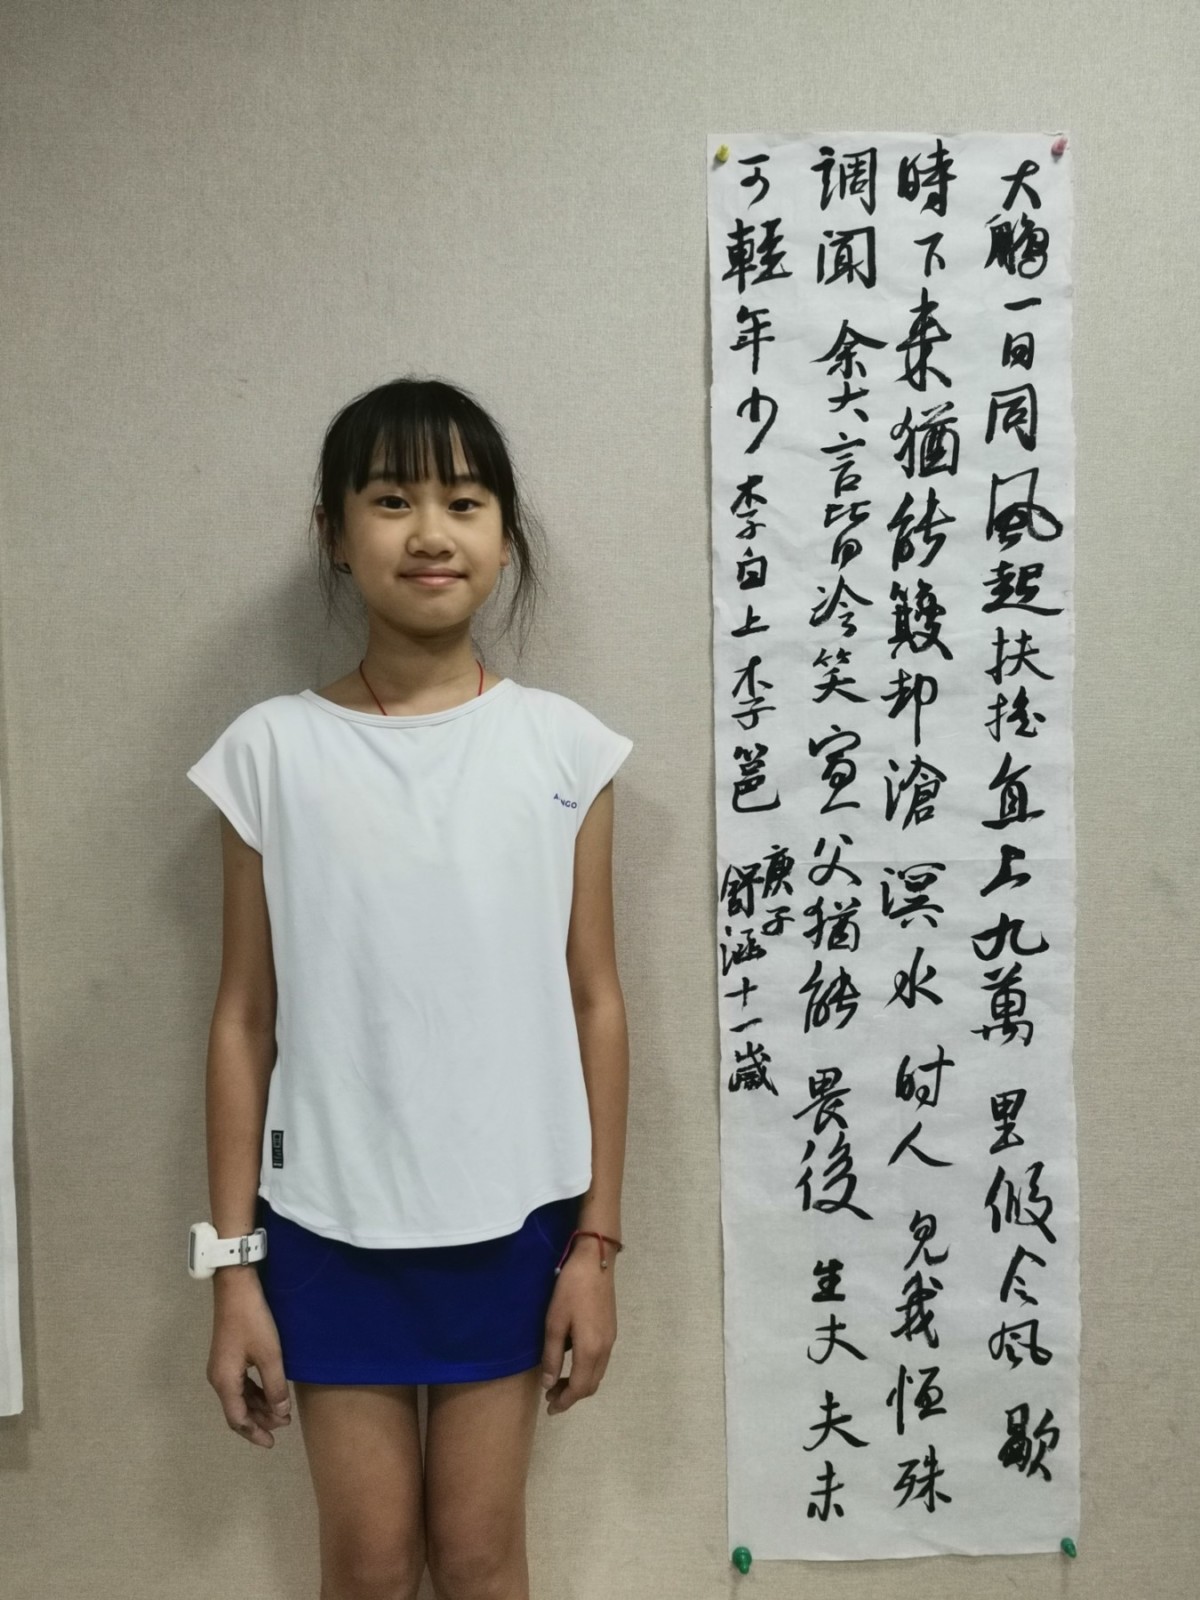 大鵬一日同風起扶搖直上九萬里假令風歇
時下来猶能簸却滄溟水时人見我恒殊
調聞余大言皆冷笑宣父猶能畏後生丈夫未
可輕年少李白上李邕
庚子
舒涵十一歲